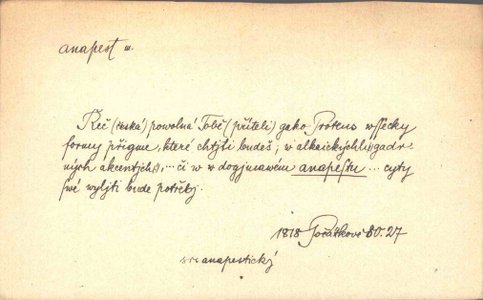 anapest m.
Řeč (česká) powolná Tobě (příteli) gako Proteus wssecky
formy přigme, které chtjti budeš; w alkaických li gadr-
ných akcentjch, ... či w dogjmawém anapestu ... cyty
swé wyljti bude potřebj.
1818 Počátkowé 80.27
anapestický